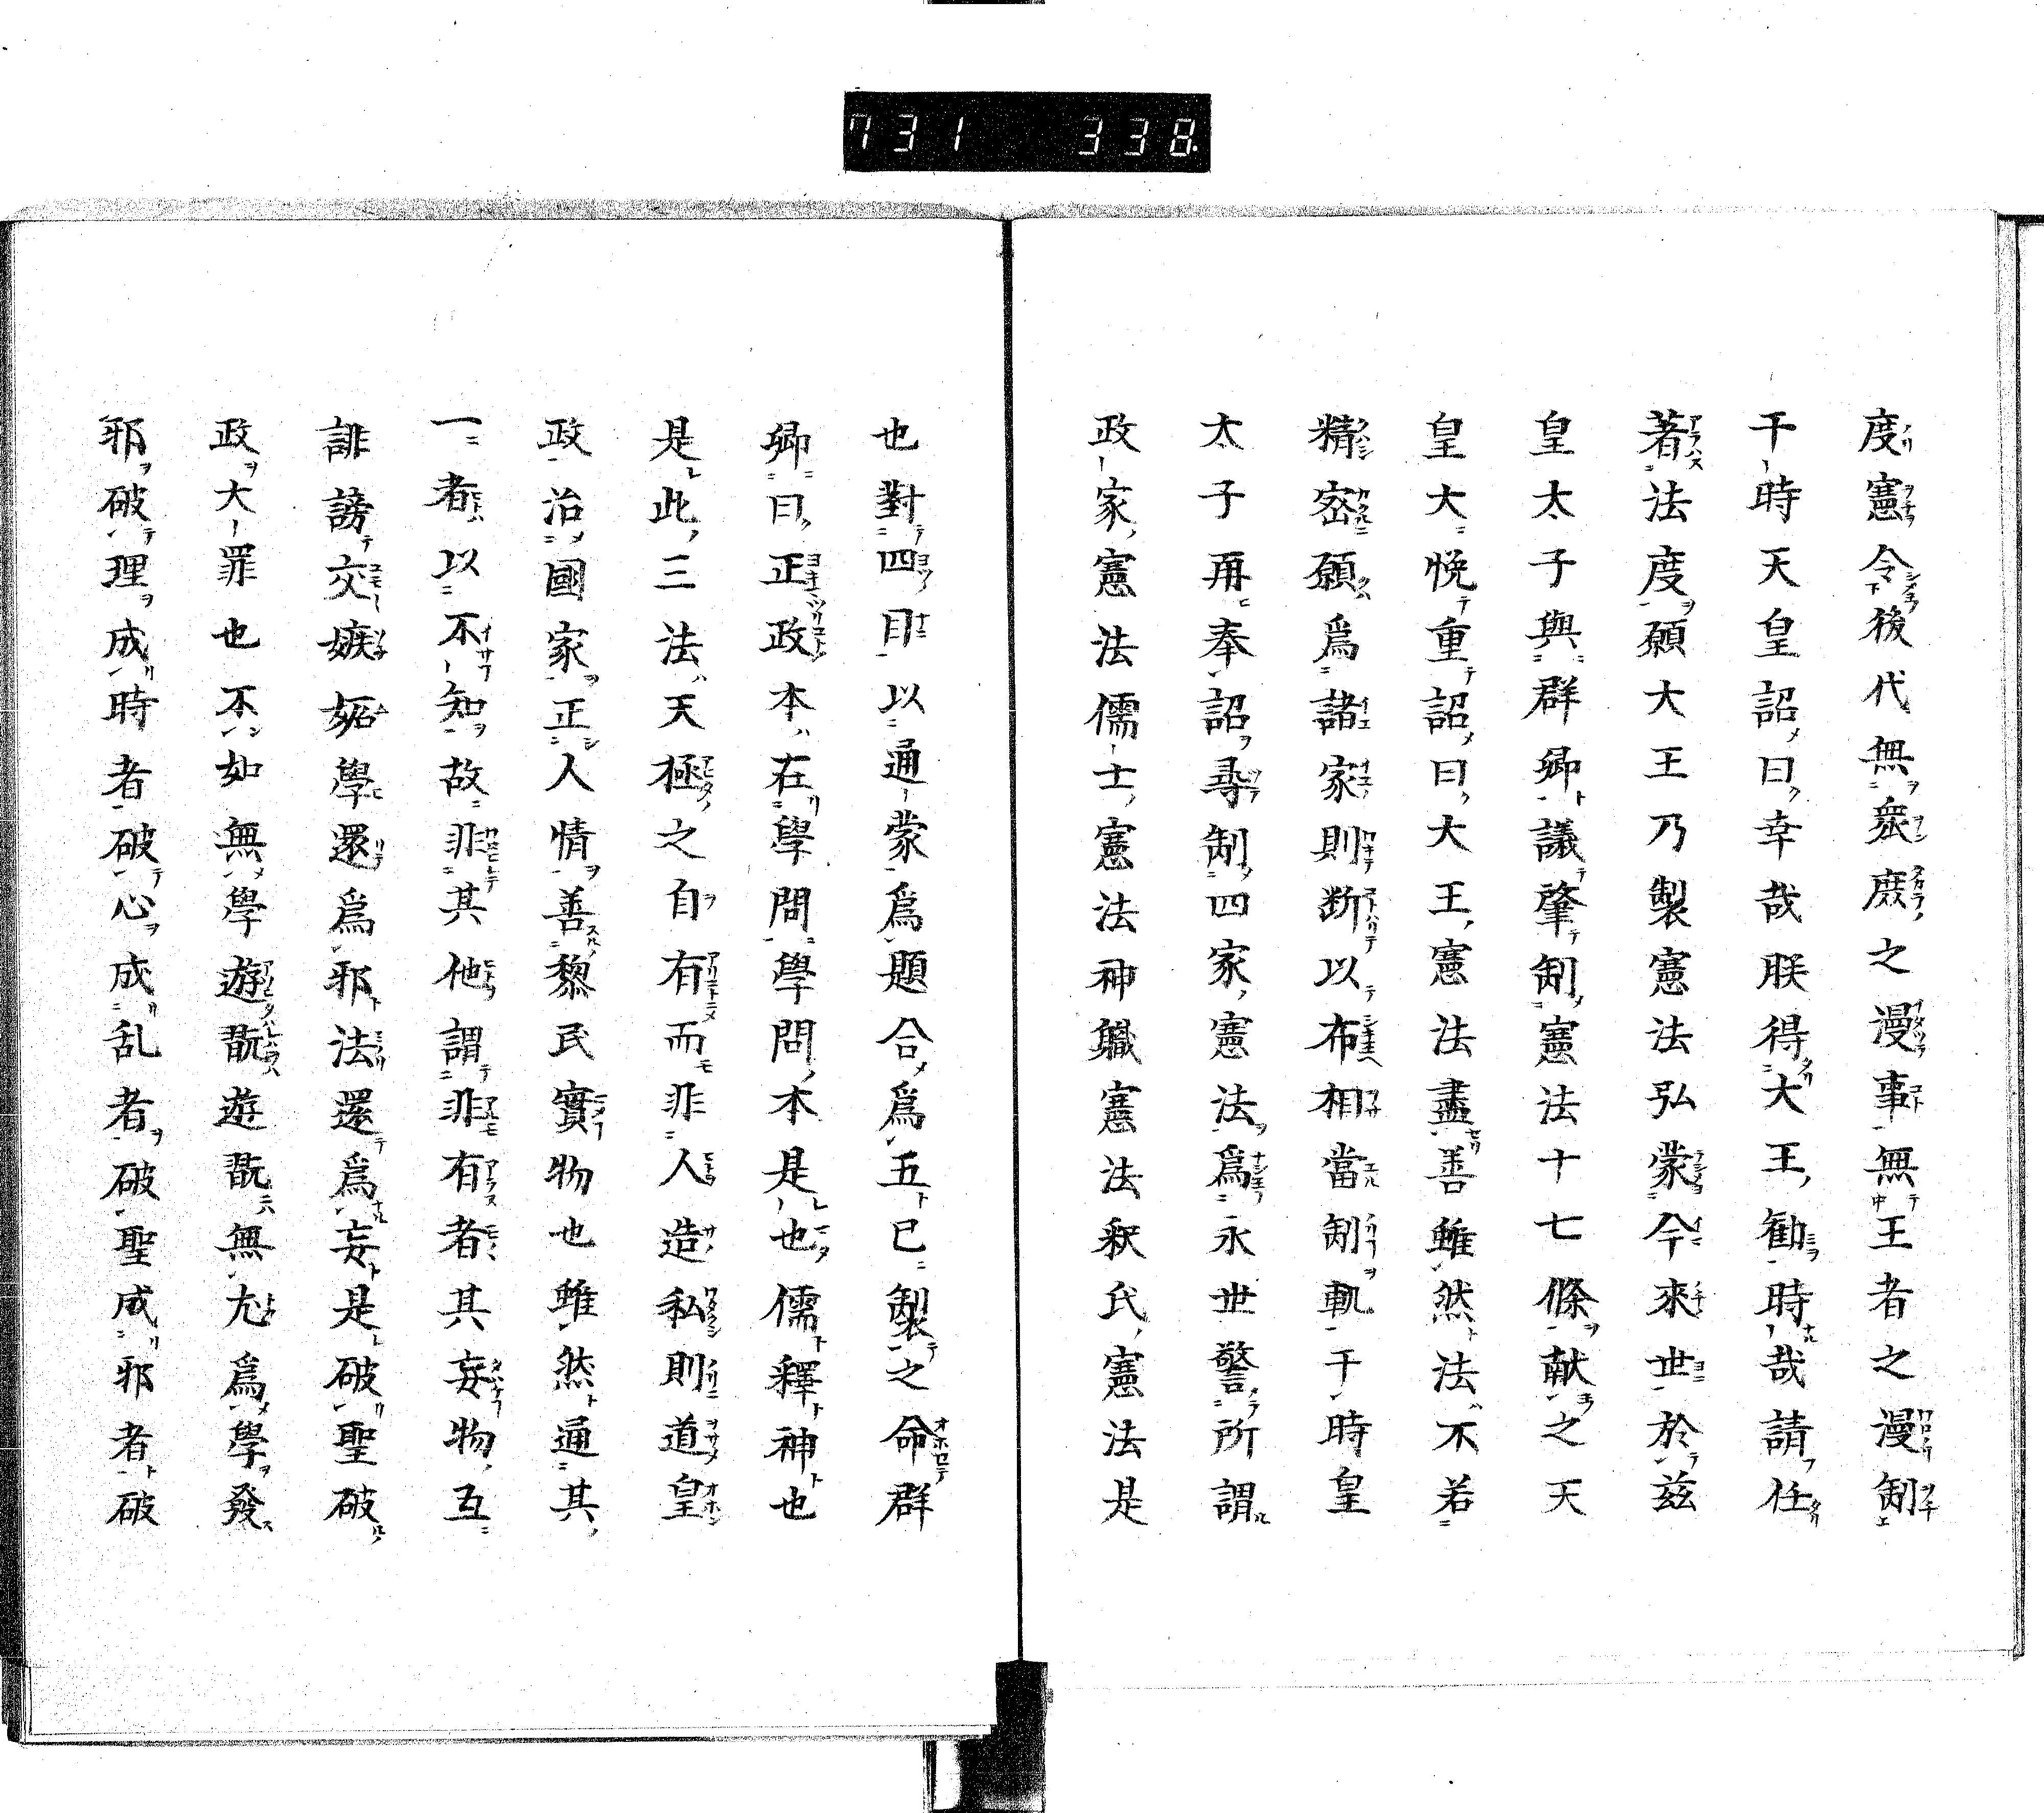 731 338
度憲令後代無衆庶之漫事無王者之漫制
于時天皇詔曰幸哉朕得大王勧時哉請任
著法度願大王乃製憲法弘蒙今來世於茲
皇太子與群卿議肇制憲法十七條献之天
皇大悦重詔曰大王憲法盡善雖然法不若
精密願爲諸家則断以布相當制軌于時皇
太子再奉詔尋制四家憲法爲永世警所謂
政家憲法儒士憲法神職憲法釈氏憲法是
也對四目以通蒙爲題合爲五已製之命群
卿曰正政本在學問學問本是也儒釋神也
是此三法天極之自有而非人造私則道皇
政治國家正人情善黎民實物也雖然通其
一者以不知故非其他謂非有者其妄物互
誹謗交嫉妬學還爲邪法還爲妄是破聖破
政大罪也不如無學遊翫遊翫無尤爲學發
邪破理成時者破心成乱者破聖成邪者破